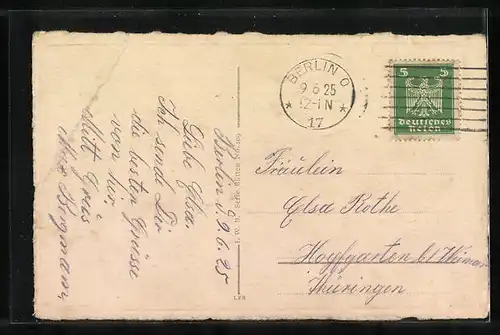 Berlin d. 9.6.25
Liebe Elsa.
Ich sende Dir
die besten Grüsse
von hier
Mit Gruss
Bergmann
BERLIN O
9 6 25
12-1 N
* 17 *
5 5
Deutsches
Reich
Fräulein
Elsa Rothe
b/ Weimar
Thüringen